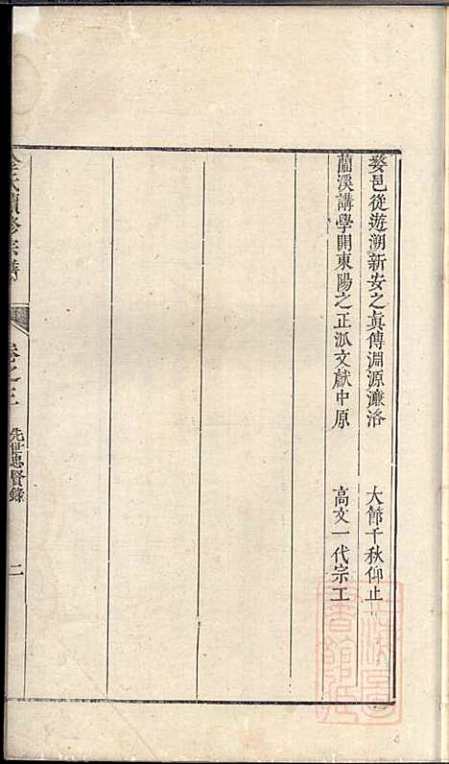 婺邑從遊溯新安之眞傳淵源濂洛　大節千秋仰止
蘭溪講學開東陽之正派文獻中原　高文一代宗工
氏續修宗譜
卷之三　先世忠賢錄　二